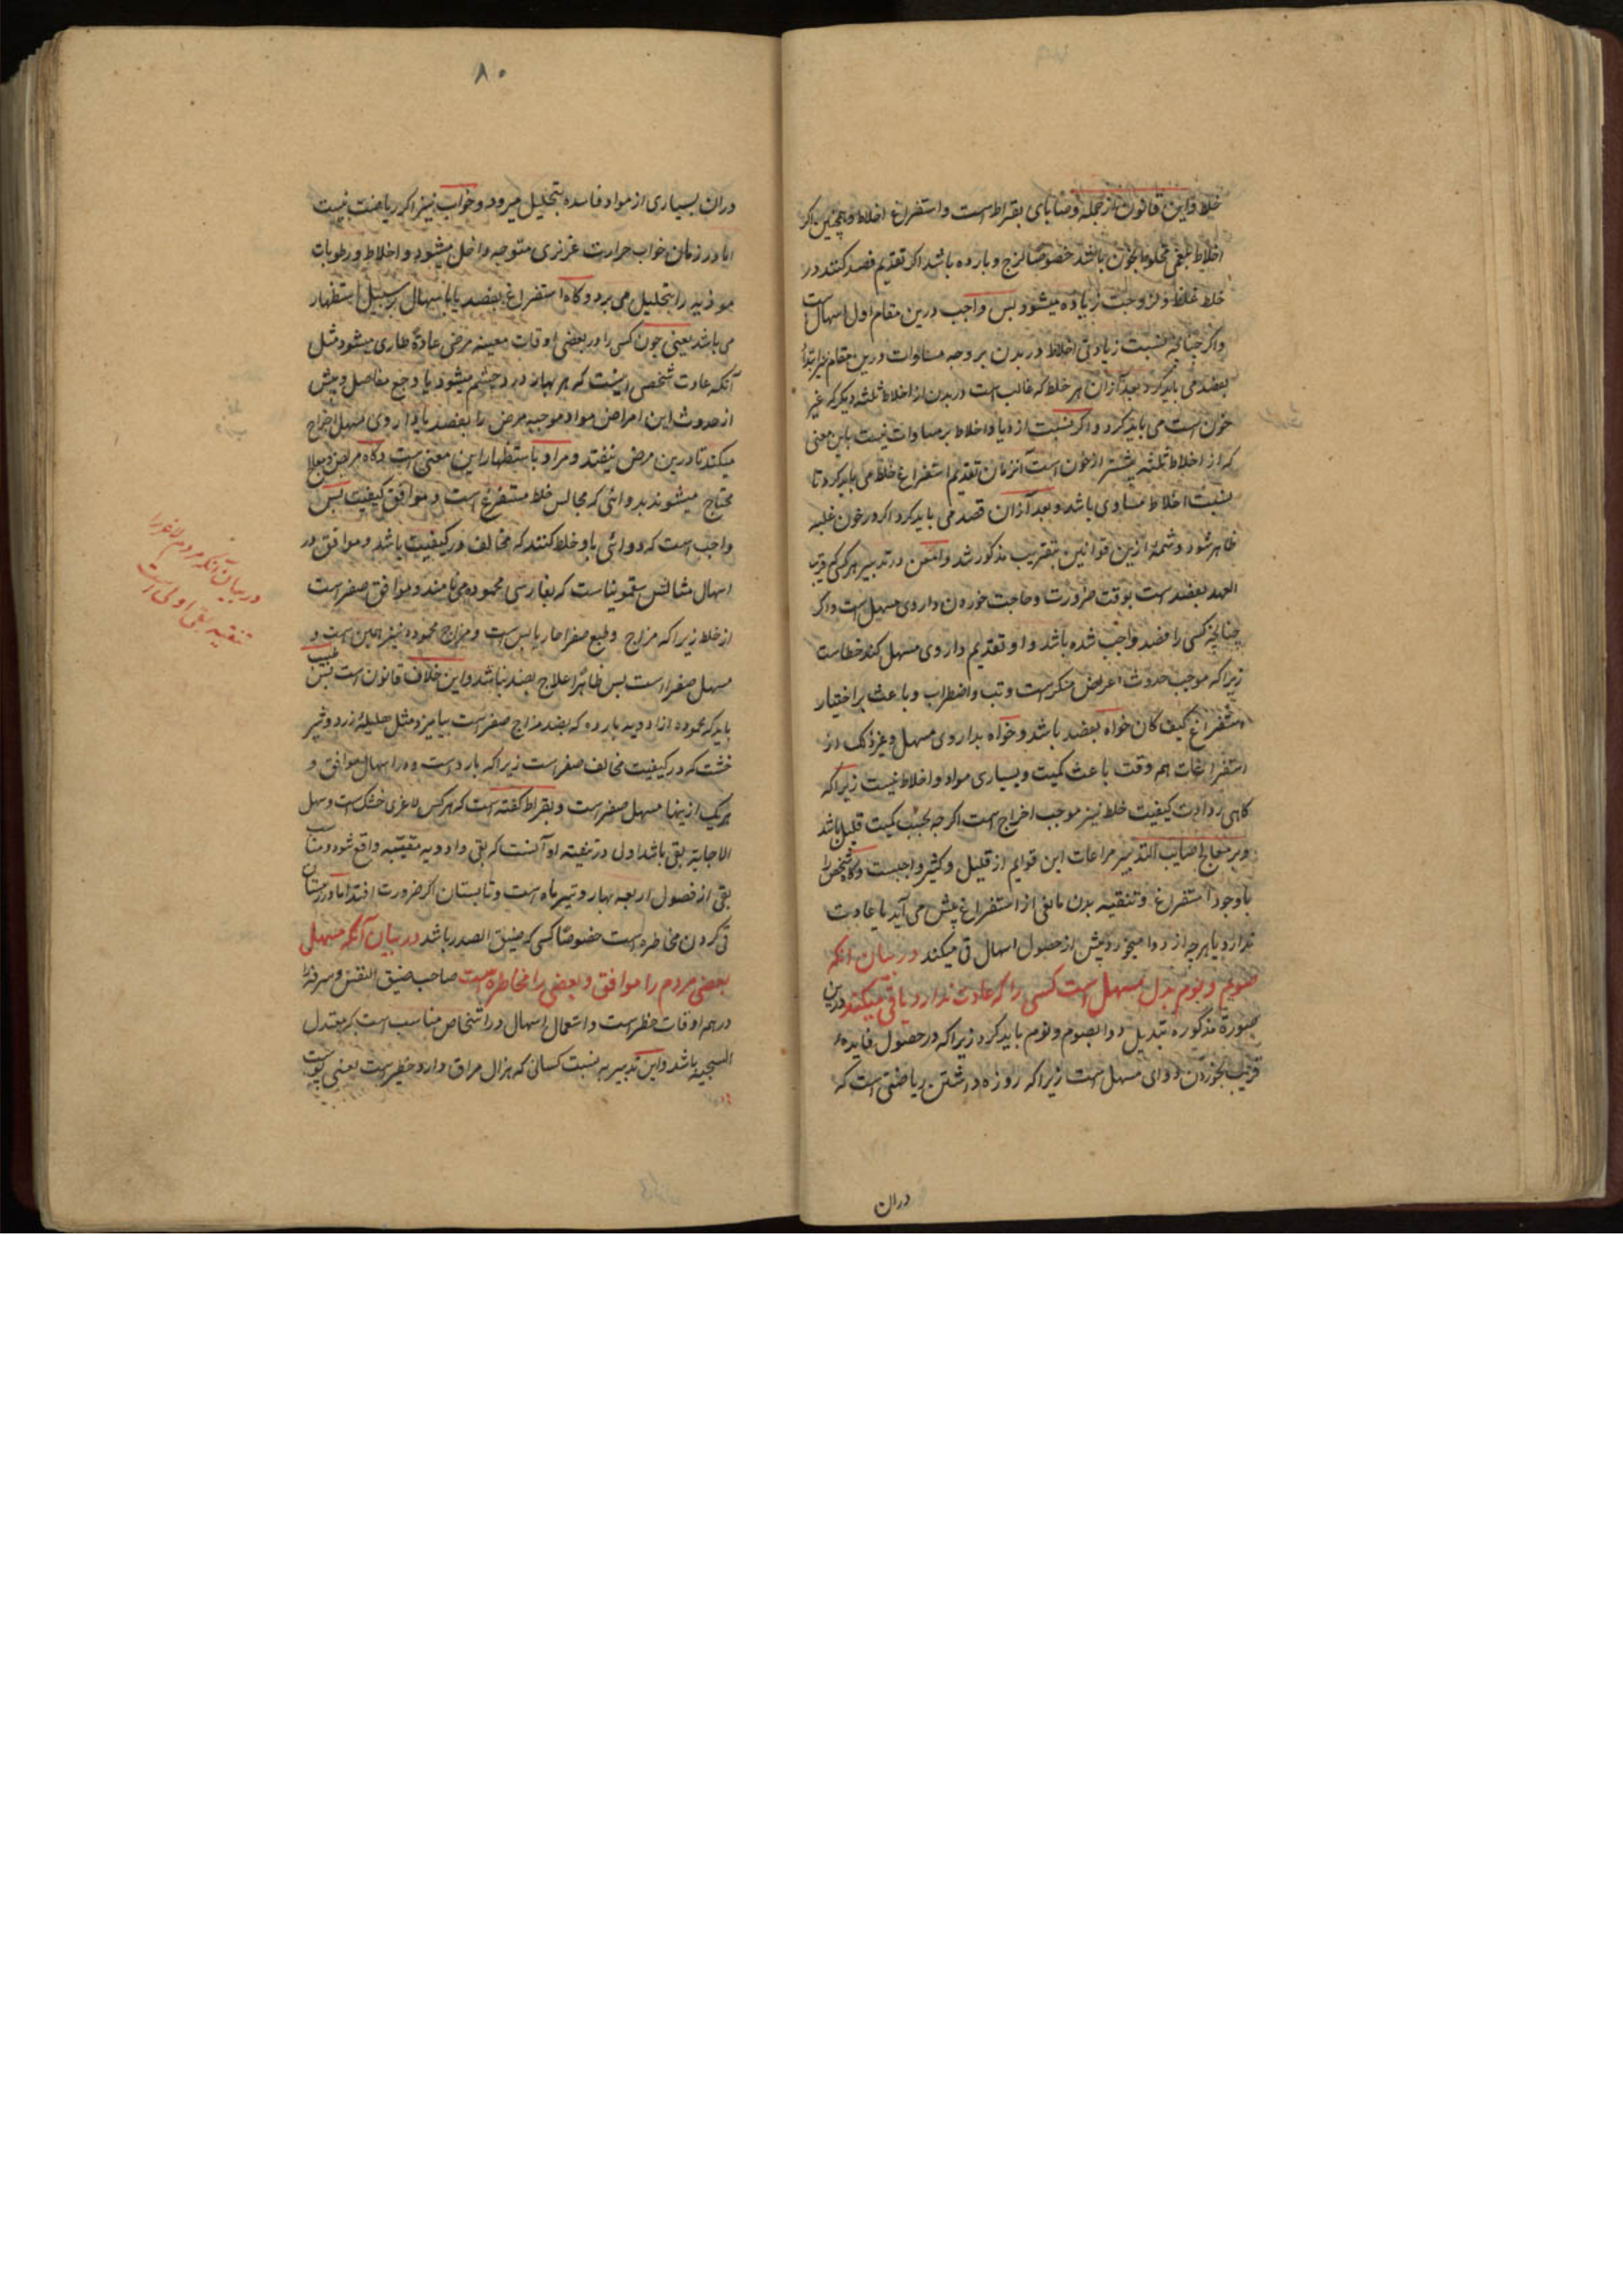 خلط و این قانون از جمله وصایای بقراط است و استفراغ اخلاط و همچنین اکر
اخلاط بلغمی مخلوط بخون باشد خصوصا لزج و بارده باشد اکر تقدیم فصد کنند در
خلط غلظ و لزوجت زیاده میشود بس واجب درین مقام اول اسهال است
واکر جنانچه نسبت زیادتی اخلاط در بدن بر وجه مساوات درین مقام نیز ابتدأ
بفصد می باید کرد بعد ازان هر خلط که غالب است در بدن از اخلاط ثلثه دیکر که غیر
خون است می باید کرد و اکر نسبت ازدیاد اخلاط بر مساوات نیست باین معنی
که از اخلاط ثلثه بیشتر از خون است آنزمان تقدیم استفراغ خلط می باید کرد تا
نسبت اخلاط مساوی باشد و بعد ازان فصد می باید کرد اکر در خون غلبه
ظاهر شود و شمهٔ ازین قوانین بتقریب مذکور شد در تدبیر هر کسی که قریب
العهد بفصد ست بوقت ضرورت و حاجت خوردن داروی مسهل است و اکر
جنانچه کسی را فصد واجب شده باشد و او تقدیم داروی مسهل کند خطاست
زیرا که موجب حدوث اعراض منکر ست و تب و اضطراب و باعث بر اختیار
استفراغ کیف کان خواه بفصد باشد و خواه بداروی مسهل و غیر ذلک در
استفراغات هم وقت باعث کمیت و بسیاری مواد و اخلاط نیست زیرا که
کاهی ردائت کیفیت خلط نیز موجب اخراج است اکر جه بحسب کمیت قلیل باشد
و بر معالج صایب التدبیر مراعات این قوایم از قلیل و کثیر واجبست و کاه شخص را
با وجود استفراغ و تنقیه بدن مانعی از استفراغ پیش می آید یا عادت
ندارد یا هرچه از دوا میخورد پیش از حصول اسهال قی میکند در بیان انکه
صوم و نوم بدل مسهل است کسی را که عادت ندارد یا قی میکند درین
صورة مذکوره تبدیل دوا بصوم و نوم باید کرد زیرا که در حصول فایده
قریب بخوردن دوای مسهل ست زیرا که روزه داشتن ریاضتی است که
دران
۸۰
دران بسیاری از مواد فاسده بتحلیل میرود و خواب نیز اکر ریاضت نیست
اما در زمان خواب حرارت غریزی متوجه داخل میشود و اخلاط و رطوبات
موذیه را بتحلیل می برد و کاه استفراغ بفصد یا باسهال بر سبیل استظهار
می باشد یعنی چون کسی را در بعضی اوقات معینه مرض عادة طاری میشود مثل
آنکه عادت شخصی اینست که هر بهار درد چشم میشود یا وجع مفاصل و پیش
از حدوث این امراض مواد موجبه مرض را بفصد یا داروی مسهل اخراج
میکند تا درین مرض نیفتد و مراد باستظهار این معنی است و کاه مریض و معالج
محتاج میشوند بدوائی که مجانس خلط مستفرغ است و موافق کیفیت بس
واجب است که دوائی باو خلط کنند که مخالف در کیفیت باشد و موافق در
اسهال مثالش سقمونیا ست که بفارسی محموده می نامند و موافق صفراست
از خلط زیرا که مزاج و طبع صفرا حار یابس است و مزاج محموده نیز همین است و
مسهل صفراست بس ظاهرا علاج بضد نباشد و این خلاف قانون است بس
باید که محموده از ادویه بارده که بضد مزاج صفراست بیامیزد مثل هلیلهٔ زرد و شیر
خشت که در کیفیت مخالف صفراست زیرا که بارد ست و در اسهال موافق و
هر یک ازینها مسهل صفراست و بقراط کفته است که هر کس لاغری خشک است و سهل
الاجابة بقی باشد اول در تنقیه او آنست که بقی و ادویه مقیئه واقع شود و مناسب
بقی از فصول اربعه بهار و تیر ماه است و تابستان اکر ضرورت افتد اما در زمستان
قی کردن مخاطره است خصوصا کسی که ضیق الصدر باشد در بیان آنکه مسهلی
بعضی مردم را موافق و بعضی را مخاطره ست صاحب ضیق النفس و سرفه را
در همه اوقات خطر است و استعمال اسهال در اشخاص مناسب است که معتدل
السجیه باشد و این تدبیر به نسبت کسانی که هزال مراق دارد خطر است یعنی پوست
در بیان آنکه مردم لاغر را
تنقیه بقی اولی است